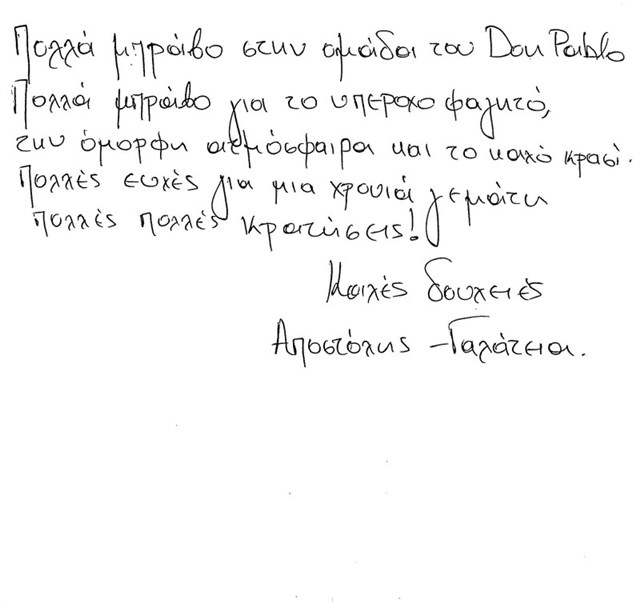 Πολλά μπράβο στην ομάδα του Don Pablo
Πολλά μπράβο για το υπέροχο φαγητό,
την όμορφη ατμόσφαιρα και το καλό κρασί.
Πολλές ευχές για μια χρονιά γεμάτη
πολλές πολλές κρατήσεις!
Καλές δουλειές
Αποστόλης - Γαλάτεια.